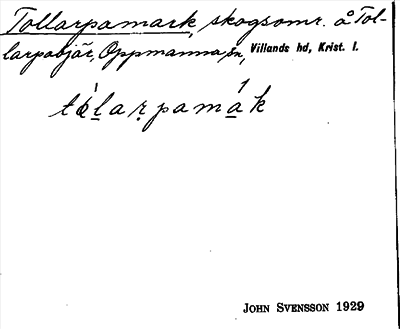 Tollarpamark, skogsomr. å Tol-
larpabjär, Oppmanna sn, Villands hd, Krist. l.
tòlarpamák
JOHN SVENSSON 1929